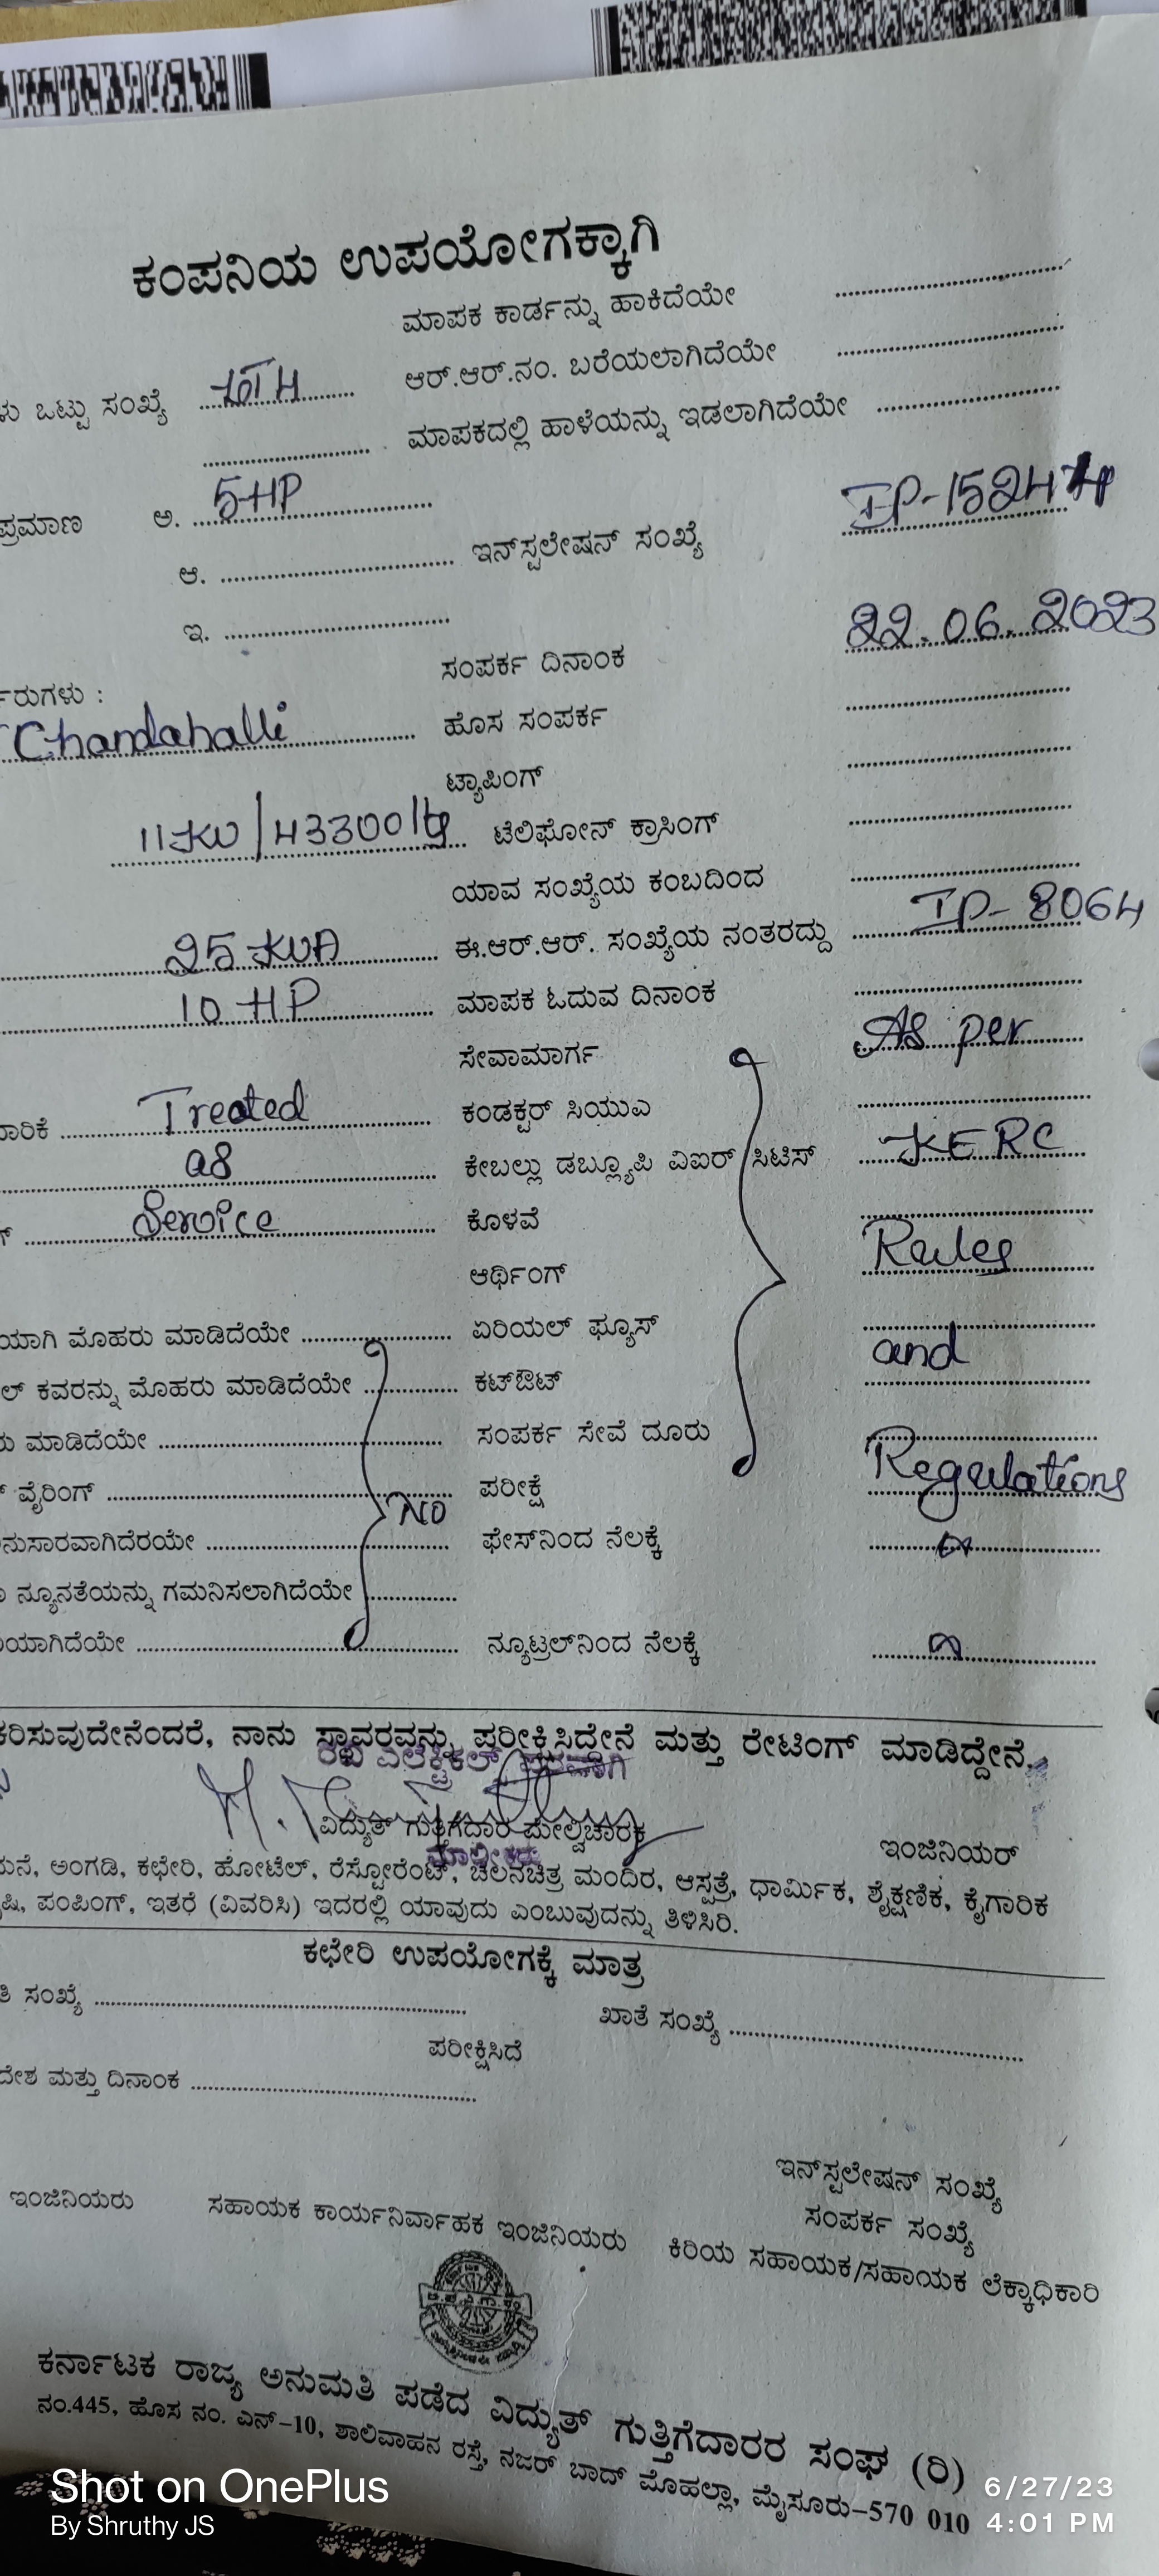 ಕಂಪನಿಯ ಉಪಯೋಗಕ್ಕಾಗಿ
ಮಾಪಕ ಕಾರ್ಡನ್ನು ಹಾಕಿದೆಯೇ
ಳು ಒಟ್ಟು ಸಂಖ್ಯೆ ಆರ್.ಆರ್.ನಂ. ಬರೆಯಲಾಗಿದೆಯೇ
ಮಾಪಕದಲ್ಲಿ ಹಾಳೆಯನ್ನು ಇಡಲಾಗಿದೆಯೇ
ಪ್ರಮಾಣ ಅ. 5HP
ಆ. ಇನ್‌ಸ್ಟಲೇಷನ್ ಸಂಖ್ಯೆ
ಇ.
ಸಂಪರ್ಕ ದಿನಾಂಕ 22.06.2023
ರುಗಳು :
Chandahalli ಹೊಸ ಸಂಪರ್ಕ
ಟ್ಯಾಪಿಂಗ್
ಟೆಲಿಫೋನ್ ಕ್ರಾಸಿಂಗ್
ಯಾವ ಸಂಖ್ಯೆಯ ಕಂಬದಿಂದ
25 KVA ಈ.ಆರ್.ಆರ್. ಸಂಖ್ಯೆಯ ನಂತರದ್ದು IP-8064
10 HP ಮಾಪಕ ಓದುವ ದಿನಾಂಕ
ಸೇವಾಮಾರ್ಗ As per
ಾರಿಕೆ Treated ಕಂಡಕ್ಟರ್ ಸಿಯುಎ
as ಕೇಬಲ್ಲು ಡಬ್ಲ್ಯೂಪಿ ವಿಐರ್ ಸಿಟಿಸ್ KERC
Service ಕೊಳವೆ
ಆರ್ಥಿಂಗ್ Rules
ಯಾಗಿ ಮೊಹರು ಮಾಡಿದೆಯೇ ಏರಿಯಲ್ ಫ್ಯೂಸ್
and
ಲ್ ಕವರನ್ನು ಮೊಹರು ಮಾಡಿದೆಯೇ ಕಟ್‌ಔಟ್
ಮಾಡಿದೆಯೇ ಸಂಪರ್ಕ ಸೇವೆ ದೂರು
ವೈರಿಂಗ್ NO ಪರೀಕ್ಷೆ Regulations
ನುಸಾರವಾಗಿದೆರಯೇ ಫೇಸ್‌ನಿಂದ ನೆಲಕ್ಕೆ
ನ್ಯೂನತೆಯನ್ನು ಗಮನಿಸಲಾಗಿದೆಯೇ
ಯಾಗಿದೆಯೇ ನ್ಯೂಟ್ರಲ್‌ನಿಂದ ನೆಲಕ್ಕೆ
ಕರಿಸುವುದೇನೆಂದರೆ, ನಾನು ಸ್ಥಾವರವನ್ನು ಪರೀಕ್ಷಿಸಿದ್ದೇನೆ ಮತ್ತು ರೇಟಿಂಗ್ ಮಾಡಿದ್ದೇನೆ.
ವಿದ್ಯುತ್ ಗುತ್ತಿಗೆದಾರ ಮೇಲ್ವಿಚಾರಕ ಇಂಜಿನಿಯರ್
ಮನೆ, ಅಂಗಡಿ, ಕಛೇರಿ, ಹೋಟೆಲ್, ರೆಸ್ಟೋರೆಂಟ್, ಚಲನಚಿತ್ರ ಮಂದಿರ, ಆಸ್ಪತ್ರೆ, ಧಾರ್ಮಿಕ, ಶೈಕ್ಷಣಿಕ, ಕೈಗಾರಿಕ
ಷಿ, ಪಂಪಿಂಗ್, ಇತರೆ (ವಿವರಿಸಿ) ಇದರಲ್ಲಿ ಯಾವುದು ಎಂಬುವುದನ್ನು ತಿಳಿಸಿರಿ.
ಕಛೇರಿ ಉಪಯೋಗಕ್ಕೆ ಮಾತ್ರ
ತಿ ಸಂಖ್ಯೆ ಖಾತೆ ಸಂಖ್ಯೆ
ಪರೀಕ್ಷಿಸಿದೆ
ದೇಶ ಮತ್ತು ದಿನಾಂಕ
ಇನ್‌ಸ್ಟಲೇಷನ್ ಸಂಖ್ಯೆ
ಸಂಪರ್ಕ ಸಂಖ್ಯೆ
ಇಂಜಿನಿಯರು ಸಹಾಯಕ ಕಾರ್ಯನಿರ್ವಾಹಕ ಇಂಜಿನಿಯರು ಕಿರಿಯ ಸಹಾಯಕ/ಸಹಾಯಕ ಲೆಕ್ಕಾಧಿಕಾರಿ
ಕರ್ನಾಟಕ ರಾಜ್ಯ ಅನುಮತಿ ಪಡೆದ ವಿದ್ಯುತ್ ಗುತ್ತಿಗೆದಾರರ ಸಂಘ (ರಿ)
ನಂ.445, ಹೊಸ ನಂ. ಎನ್-10, ಶಾಲಿವಾಹನ ರಸ್ತೆ, ನಜರ್ ಬಾದ್ ಮೊಹಲ್ಲಾ, ಮೈಸೂರು-570 010
Shot on OnePlus
By Shruthy JS
6/27/23
4:01 PM